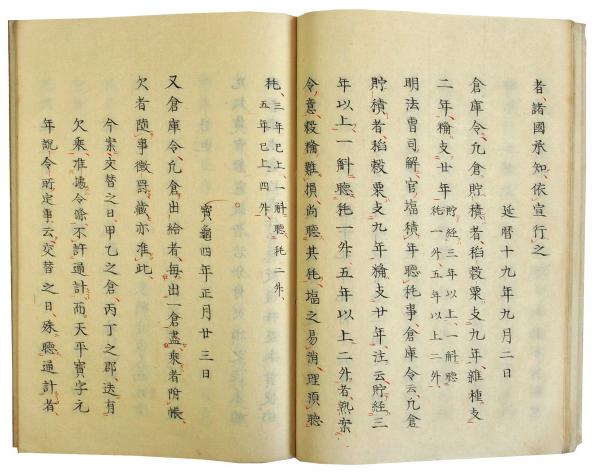 者、諸國承知、依宣行之
延暦十九年九月二日
倉庫令、凡倉貯積者、稻穀粟支九年、雜種支
二年、糒支廿年、貯経三年以上、一斛聴
耗一升、五年以上二升、
明法曹司解官塩積年聴耗事、倉庫令云、凡倉
貯積者、稻穀粟支九年、糒支廿年、注云、貯経三
年以上、一斛聴耗一升、五年以上二升者、熟案
令意、穀糒難損、尚聴其耗、塩之易消、理須聴
耗、三年已上、一斛聴耗二升、
五年已上四升、
寶龜四年正月廿三日
又倉庫令、凡倉出給者、毎出一倉盡、乗者附帳、
欠者随事徴罰、蔵亦准此、
今案、交替之日、甲乙之倉、丙丁之郡、迭有
欠乗、准據令條、不許通計、而天平寶字元
年説令所定事云、交替之日、殊聴通計者、